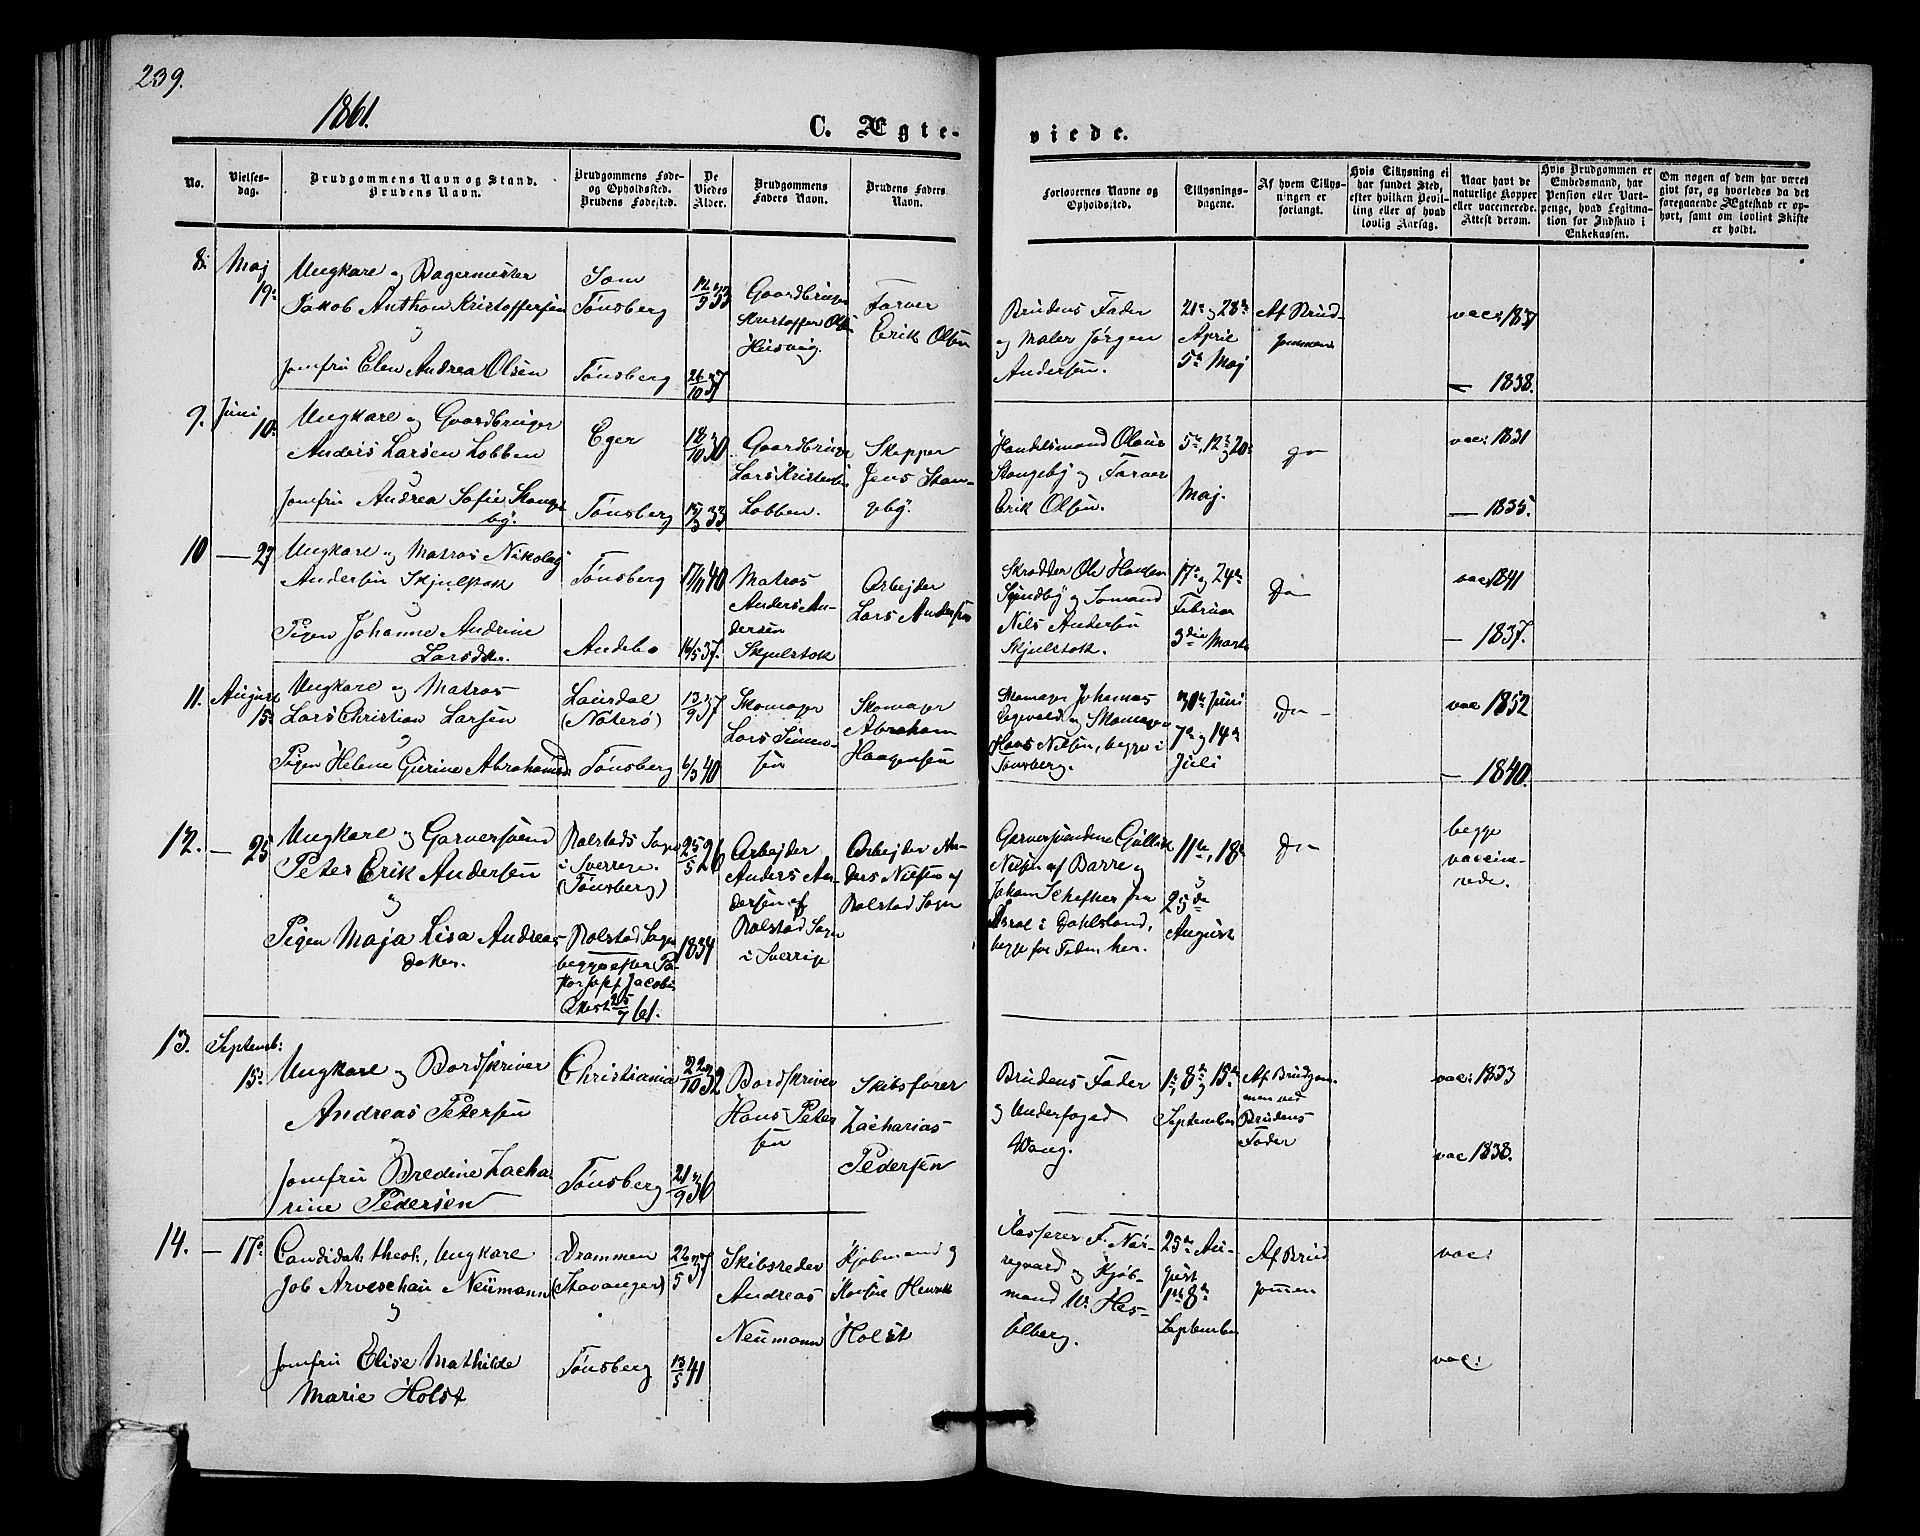 239.
1861.
C. Ægte-viede.
No.
Vielses-dag.
Brudgommens Navn og Stand.
Brudens Navn.
Brudgommens Føde-
og Opholdssted.
Brudens Fødested.
De
Viedes
Alder.
Brudgommens
Faders Navn.
Brudens Faders
Navn.
Forlovernes Navne og
Opholdssted.
Tillysnings-
dagene.
Af hvem Tillys-
ningen er
forlangt.
Hvis Tillysning ei
har fundet Sted,
efter hvilken Bevil-
ling eller af hvad
lovlig Aarsag.
Naar havt de
naturlige Kopper
eller vaccinerede.
Attest derom.
Hvis Brudgommen er
Embedsmand, har
Pension eller Vart-
penge, hvad Legitima-
tion for Indskud i
Enkekassen.
Om nogen af dem har været
givt før, og hvorledes da det
foregaaende Ægteskab er op-
hørt, samt om lovligt Skifte
er holdt.
8.
Maj
19de
Ungkare og Bagermester
Jakob Anthon Kristoffersen
og
Jomfru Elen Andrea Olsen
Sem
Tønsberg
Tønsberg
26/10 37
Gaardbruger
Kristoffer
Farver
Erik Olsen
Brudens Fader
og Maler Jørgen
Andersen.
21de og 28de
April
5te Maj
Af Brud-
gommen
vac: 1837
— 1838.
9.
Juni
10de
Ungkare og Gaardbruger
Anders Larsen Lobben
Jomfru Andrea Sofie Stange-
by.
Eger
Tønsberg
18/10 30
33
Gaardbruger
Lars Kristensen
Lobben.
Skipper
Jens Stan-
geby.
Handelsmand Olaus
Stangeby og Farver
Erik Olsen.
5te, 12te, 20de
Maj.
do
vac: 1831
— 1835.
10
— 27
Ungkare og Matros Nikolaj
Andersen Skjulstok
og
Pigen Johanne Andrine
Larsdtter.
Tønsberg
Andebo
17/11 40
16/5 37.
Matros
Anders An-
dersen
Skjulstok
Arbejder
Lars Andersen
Skrædder Ole Hansen
og Sømand
Nils Andersen
Skjulstok.
17de og 24de
Februar
3die Marts
Do
vac 1841
— 1837.
11.
August
15de
Ungkare og Matros
Lars Christian Larsen
og
Pigen Helene Gurine Abrahamsd
(Nøterø)
Tønsberg
13/9 37
6/3 40
Skomager
Lars Simen-
sen
Skomager
Abraham
Haagensen
Skomager Johannes
og Skomager
Hans Nilsen, begge i
Tønsberg.
30te Juni
7de og 14de
Juli
Do
vac 1852
— 1840.
12.
— 25
Ungkare og Garversvend
Peter Erik Andersen
og
Pigen Maja Lisa Andreas-
datter.
Rolstads Sogn
i Sverrige.
(Tønsberg)
Rolstad Sogn
begge efter Pa-
stor Jacobis
Attest 25/7 61.
25/5 26
1834
Arbejder
Anders An-
dersen af
Rolstad Sogn
i Sverrige
Arbejder An-
ders Nilsen af
Rolstad Sogn
Garversvendene
Nilsen af Barre og
Johan Schefter fra
i Dahlsland,
begge for Tiden her.
11te, 18de
og
25de
August
Do
begge
vaccine-
rede.
13.
Septemb:
15de
Ungkare og Bordskriver
Andreas Petersen
og
Jomfru Bredine Zacha-
rine Pedersen
Christiania
Tønsberg
22/10 32
21/9 36
Bordskriver
Hans Peter-
sen
Skibsfører
Zacharias
Pedersen
Brudens Fader
og Underfoged
Wang.
1ste, 8de og 15de
September
Af Brudgom-
men ved
Brudens
Fader
vac: 1833
vac 1838.
14.
— 17de
Candidat. theol., Ungkare
Job Arveschau Neumann
og
Jomfru Elise Mathilde
Marie Holst
Drammen
(Stavanger)
Tønsberg
22/5 37
13/5 41
Skibsreder
Andreas
Neumann
Kjøbmand og
Henrik
Holst
Kasserer F. Nør-
regaard og Kjøb-
mand W. Hes-
selberg.
25de Au-
gust
1ste 8de
September
Af Brud
gommen
vac:
vac: